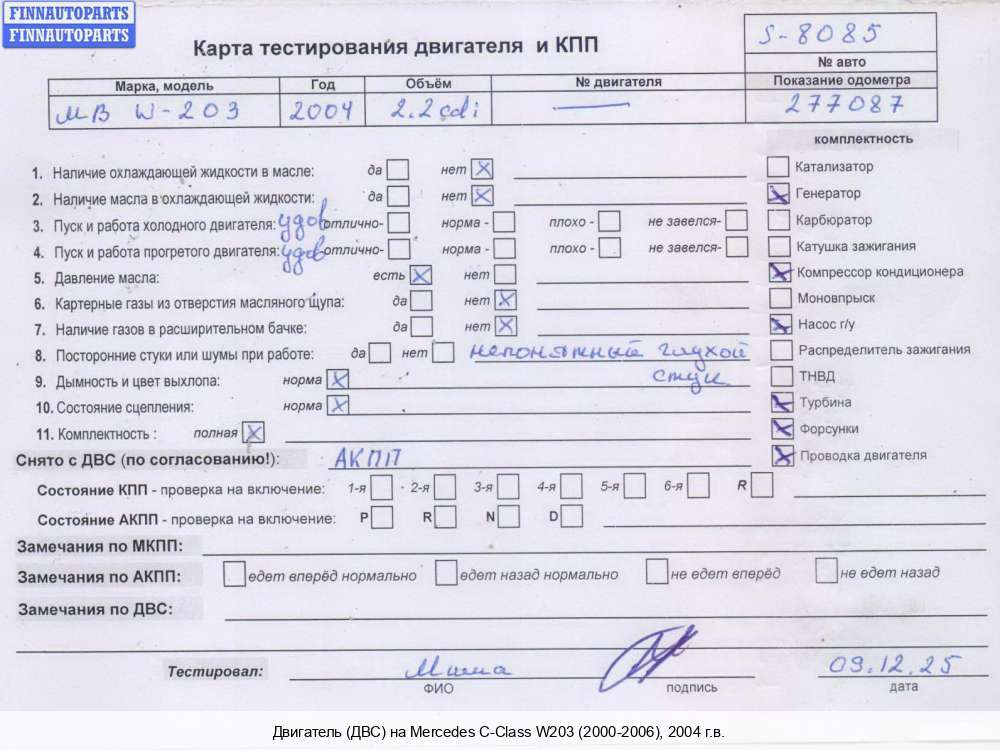 FINNAUTOPARTS
FINNAUTOPARTS
Карта тестирования двигателя и КПП
S-8085
№ авто
Марка, модель Год Объём № двигателя Показание одометра
МВ W-203 2004 2.2 cdi — 277087
комплектность
1. Наличие охлаждающей жидкости в масле: да нет X
Катализатор
2. Наличие масла в охлаждающей жидкости: да нет X
X Генератор
3. Пуск и работа холодного двигателя: удов отлично- норма - плохо - не завелся-
Карбюратор
4. Пуск и работа прогретого двигателя: удов отлично- норма - плохо - не завелся-
Катушка зажигания
5. Давление масла: есть X нет
X Компрессор кондиционера
6. Картерные газы из отверстия масляного щупа: да нет X
Моновпрыск
7. Наличие газов в расширительном бачке: да нет X
X Насос г/у
8. Посторонние стуки или шумы при работе: да нет непонятный глухой
стук
Распределитель зажигания
9. Дымность и цвет выхлопа: норма X
ТНВД
10. Состояние сцепления: норма X
X Турбина
11. Комплектность : полная X
X Форсунки
Снято с ДВС (по согласованию!): АКПП
X Проводка двигателя
Состояние КПП - проверка на включение: 1-я 2-я 3-я 4-я 5-я 6-я R
Состояние АКПП - проверка на включение: P R N D
Замечания по МКПП:
Замечания по АКПП: едет вперёд нормально едет назад нормально не едет вперёд не едет назад
Замечания по ДВС:
Тестировал: Миша 09.12.25
ФИО подпись дата
Двигатель (ДВС) на Mercedes C-Class W203 (2000-2006), 2004 г.в.